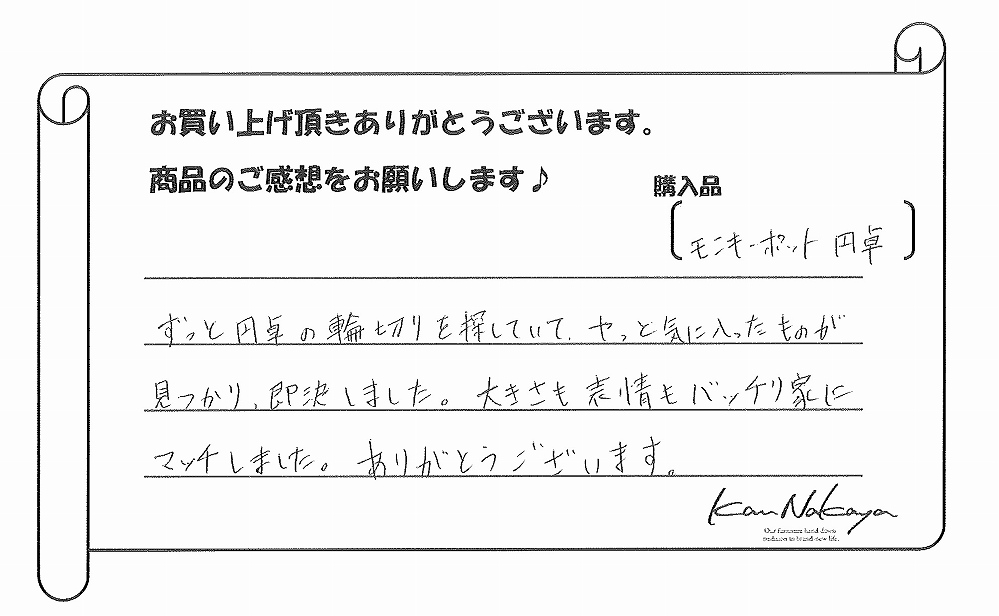 お買い上げ頂きありがとうございます。
商品のご感想をお願いします♪
購入品
モンキーポット 円卓
ずっと円卓の輪切りを探していて、やっと気に入ったものが
見つかり、即決しました。大きさも表情もバッチリ家に
マッチしました。ありがとうございます。
Kan Nakaya
Our furniture hand down
tradition to brand-new life.